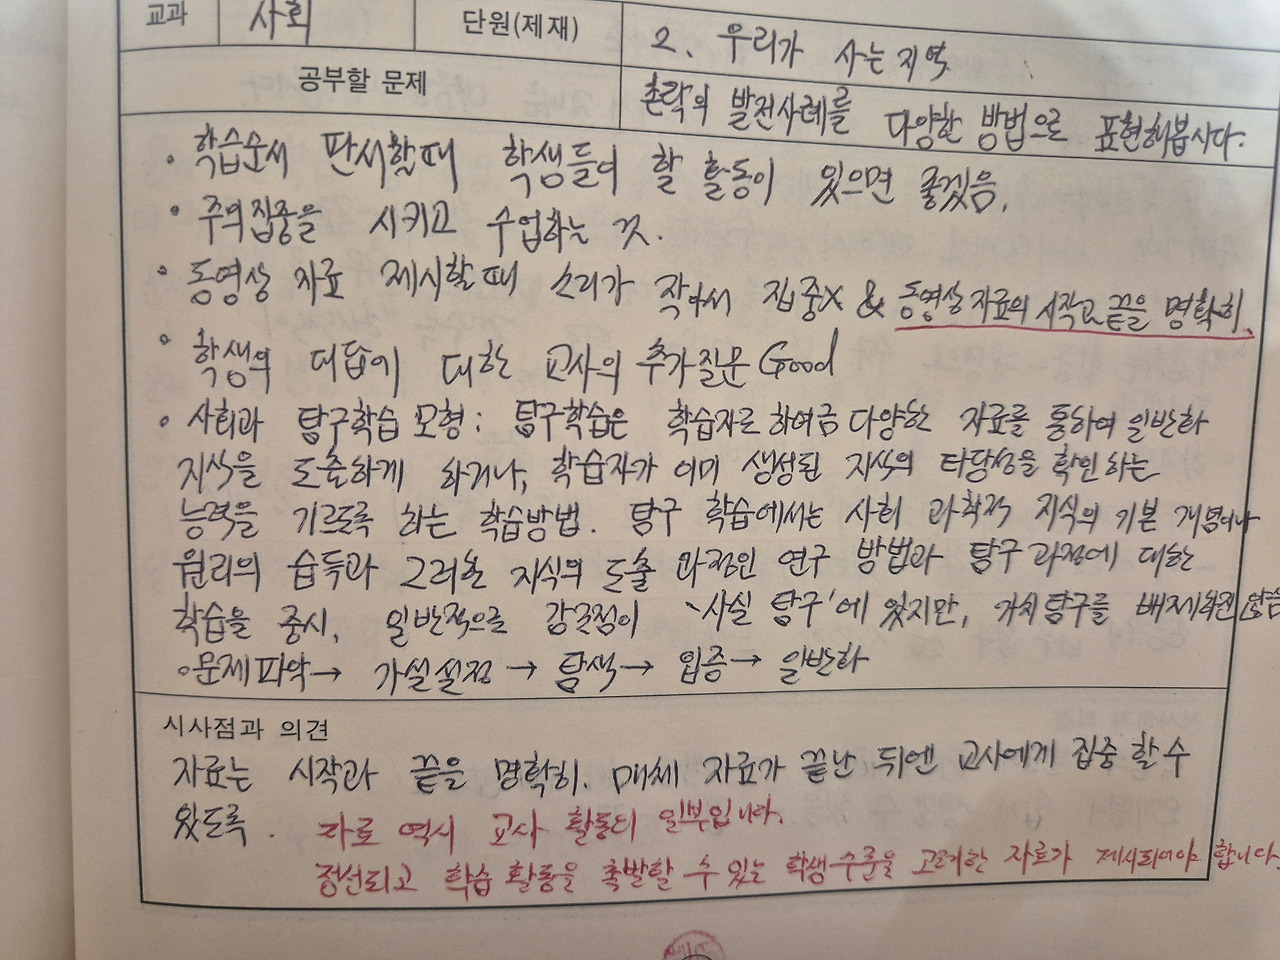 교과 사회 단원(제재) 2. 우리가 사는 지역
공부할 문제 촌락의 발전사례를 다양한 방법으로 표현해봅시다.
• 학습순서 판서할때 학생들이 할 활동이 있으면 좋겠음.
• 주의집중을 시키고 수업하는 것.
• 동영상 자료 제시할때 소리가 작아서 집중X & 동영상 자료의 시작과 끝을 명확히.
• 학생의 대답에 대한 교사의 추가질문 Good
• 사회과 탐구학습 모형: 탐구학습은 학습자로 하여금 다양한 자료를 통하여 일반화
지식을 도출하게 하거나, 학습자가 이미 생성된 지식의 타당성을 확인하는
능력을 기르도록 하는 학습방법. 탐구 학습에서는 사회 과학적 지식의 기본 개념이나
원리의 습득과 그러한 지식의 도출 과정인 연구 방법과 탐구 과정에 대한
학습을 중시, 일반적으로 강조점이 '사실 탐구'에 있지만, 가치탐구를 배제하진 않음
◦문제파악→ 가설설정 → 탐색→ 입증→ 일반화
시사점과 의견
자료는 시작과 끝을 명확히. 매체 자료가 끝난 뒤엔 교사에게 집중할 수
있도록.
자료 역시 교사 활동의 일부입니다.
정선되고 학습 활동을 촉발할 수 있는 학생수준을 고려한 자료가 제시되어야 합니다